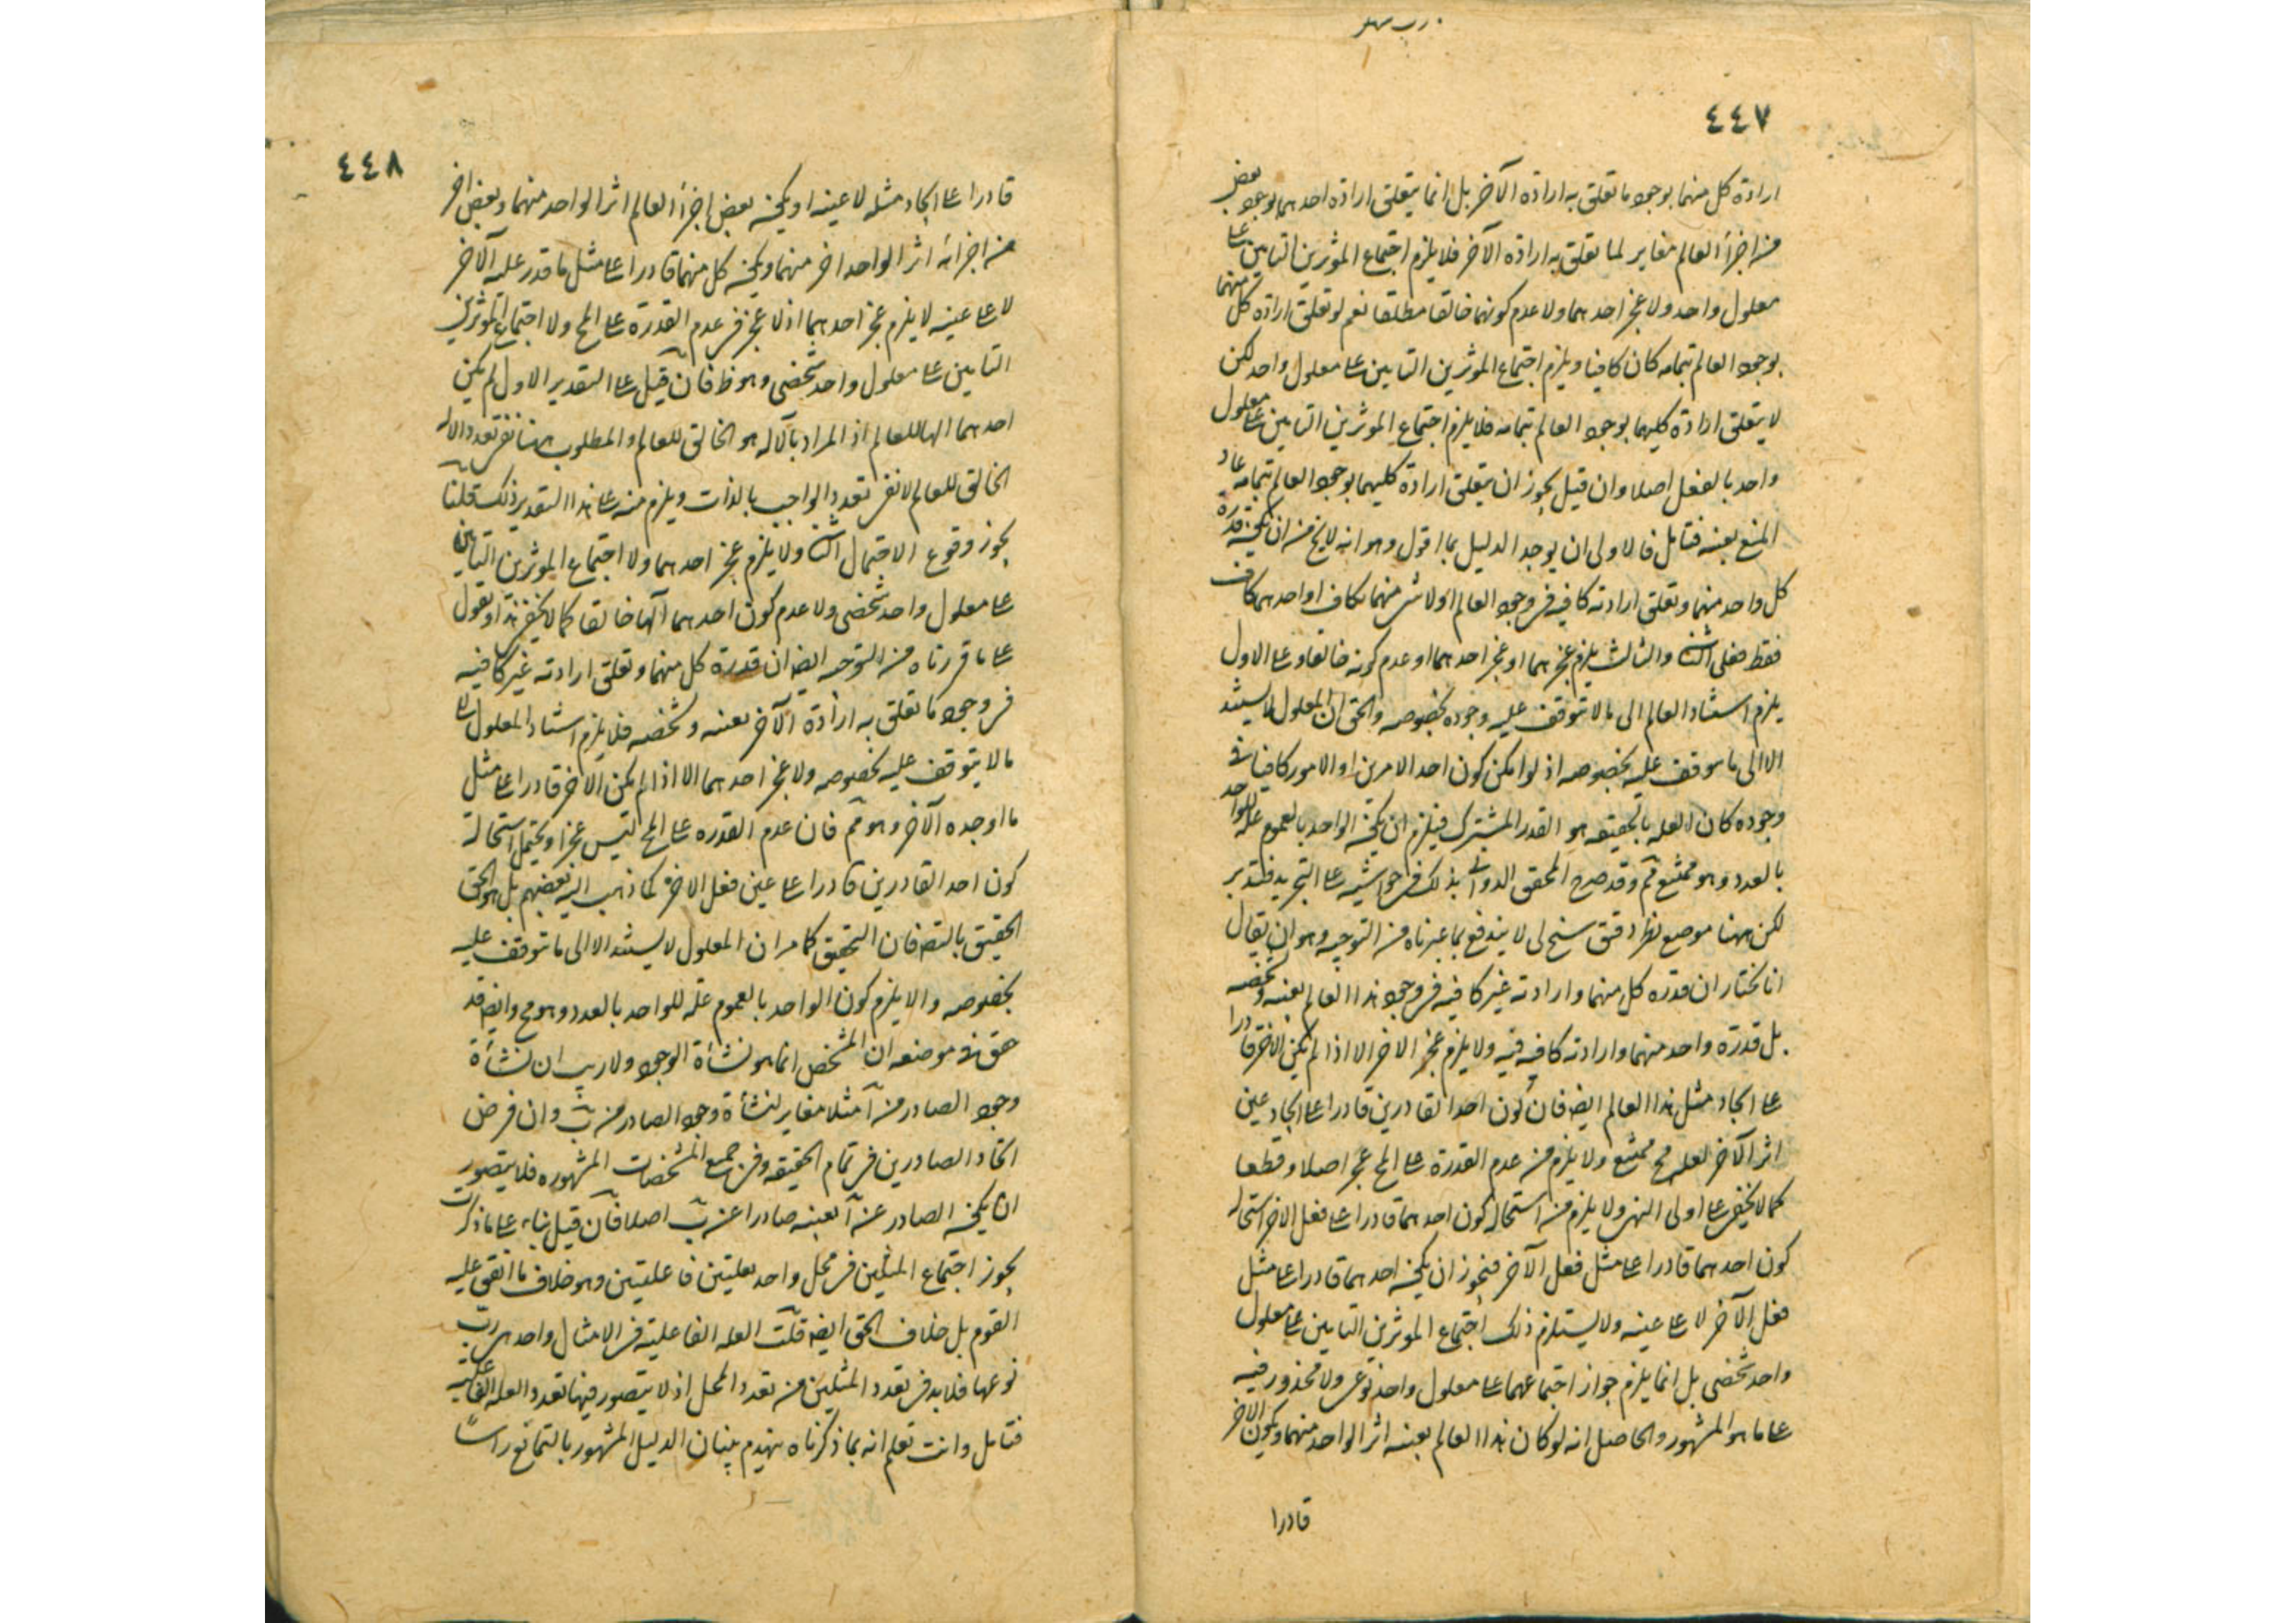 ٤٤٧
ارادة كل منهما بوجود ما تعلق به ارادة الآخر بل انما يتعلق ارادة احدهما بوجود بعض
من اجزأ العالم مغاير لما تعلق به ارادة الآخر فلا يلزم اجتماع الموثرين التامين على
معلول واحد ولا عجز احدهما ولا عدم كونهما خالقا مطلقا نعم لو تعلق ارادة كل منهما
بوجود العالم بتمامه كان كافيا ويلزم اجتماع الموثرين التامين على معلول واحد لكن
لا يتعلق ارادة كليهما بوجود العالم بتمامه فلا يلزم اجتماع الموثرين التامين على معلول
واحد بالفعل اصلا وان قيل يجوز ان يتعلق ارادة كليهما بوجود العالم بتمامه عاد
المنع بعينه فتامل فالاولى ان يوجد الدليل بما اقول وهو انه لا يخ من ان يكون قدرة
كل واحد منهما وتعلق ارادته كافيه في وجود العالم اولا شى منهما بكاف او احدهما كاف
فقط فعلى الثانى والثالث يلزم عجزهما او عجز احدهما او عدم كونه خالقا وعلى الاول
يلزم استناد العالم الى ما لا يتوقف عليه وجوده بخصوصه والحق ان المعلول لا يستند
الا الى ما يتوقف عليه بخصوصه اذ لو امكن كون احد الامرين او الامور كافيا فى
وجوده كان العله بالحقيقه هو القدر المشترك فيلزم ان يكون الواحد بالعموم علة للواحد
بالعدد وهو ممتنع ثم وقد صرح المحقق الدوانى بذلك فى حواشيه على التجريد فتدبر
لكن ههنا موضع نظر دقيق سنح لى لا يندفع بما غيرناه من التوجيه وهو ان يقال
انا نختار ان قدرة كل منهما وارادته غير كافيه فى وجود هذا العالم بعينه وشخصه
بل قدرة واحد منهما وارادته كافيه فيه ولا يلزم عجز الاخر الا اذا لم يكن الاخر قادرا
على ايجاد مثل هذا العالم ايضا فان كون احد القادرين قادرا على ايجاد عين
اثر الآخر لعله مح ممتنع ولا يلزم من عدم القدرة على المح عجز اصلا وقطعا
كما لا يخفى على اولى النهى ولا يلزم من استحالة كون احدهما قادرا على فعل الاخر استحالة
كون احدهما قادرا على مثل فعل الآخر فيجوز ان يكون احدهما قادرا على مثل
فعل الآخر لا على عينه ولا يستلزم ذلك اجتماع الموثرين التامين على معلول
واحد شخصى بل انما يلزم جواز اجتماعهما على معلول واحد نوعى ولا محذور فيه
على ما هو المشهور والحاصل انه لو كان هذا العالم بعينه اثر الواحد منهما ويكون الاخر
قادرا
٤٤٨
قادرا على ايجاد مثله لا عينه او يكون بعض اجزأ العالم اثر الواحد منهما وبعض اخر
من اجزائه اثر الواحد اخر منهما ويكون كل منهما قادرا على مثل ما قدر عليه الآخر
لا على عينه لا يلزم عجز احدهما اذ لا عجز فى عدم القدرة على المح ولا اجتماع الموثرين
التامين على معلول واحد شخصى وهو ظ فان قيل على التقدير الاول لم يكن
احدهما الها للعالم اذ المراد بالاله هو الخالق للعالم والمطلوب ههنا نفى تعدد الاله
الخالق للعالم لا نفى تعدد الواجب بالذات ويلزم منه على هذا التقدير ذلك قلنا
يجوز وقوع الاحتمال الثانى ولا يلزم عجز احدهما ولا اجتماع الموثرين التامين
على معلول واحد شخصى ولا عدم كون احدهما الها خالقا كما لا يخفى هذا ونقول
على ما قررناه من التوجيه ايضا ان قدرة كل منهما وتعلق ارادته غير كافيه
فى وجود ما تعلق به ارادة الآخر بعينه وشخصه فلا يلزم استناد المعلول الى
ما لا يتوقف عليه بخصوصه ولا عجز احدهما الا اذا لم يكن الاخر قادرا على مثل
ما اوجده الآخر وهو ثم فان عدم القدره على المح ليس عجزا ويحتمل استحالة
كون احد القادرين قادرا على عين فعل الاخر كما ذهب اليه بعضهم بل هو الحق
الحقيق بالتصـ فان التحقيق كما مر ان المعلول لا يستند الا الى ما يتوقف عليه
بخصوصه والا يلزم كون الواحد بالعموم علة للواحد بالعدد وهو مح وايضا قد
حقق فى موضعه ان التشخص انما هو نشأة الوجود ولا ريب ان نشأة
وجود الصادر من آ مثلا مغاير لنشأة وجود الصادر من ب وان فرض
اتحاد الصادرين فى تمام الحقيقه وفى جميع المشخصات المشهوره فلا يتصور
ان يكون الصادر عن آ بعينه صادرا عن ب اصلا فان قيل بناء على ما ذكرت
يجوز اجتماع المثلين فى محل واحد بعلتين فاعليتين وهو خلاف ما اتفق عليه
القوم بل خلاف الحق ايضا قلت العله الفاعليه فى الامثال واحد هى رب
نوعها فلا بد فى تعدد المثلين من تعدد المحل اذ لا يتصور فيها تعدد العله الفاعليه
فتامل وانت تعلم انه بما ذكرناه ينهدم بنيان الدليل المشهور بالتمانع راسًا